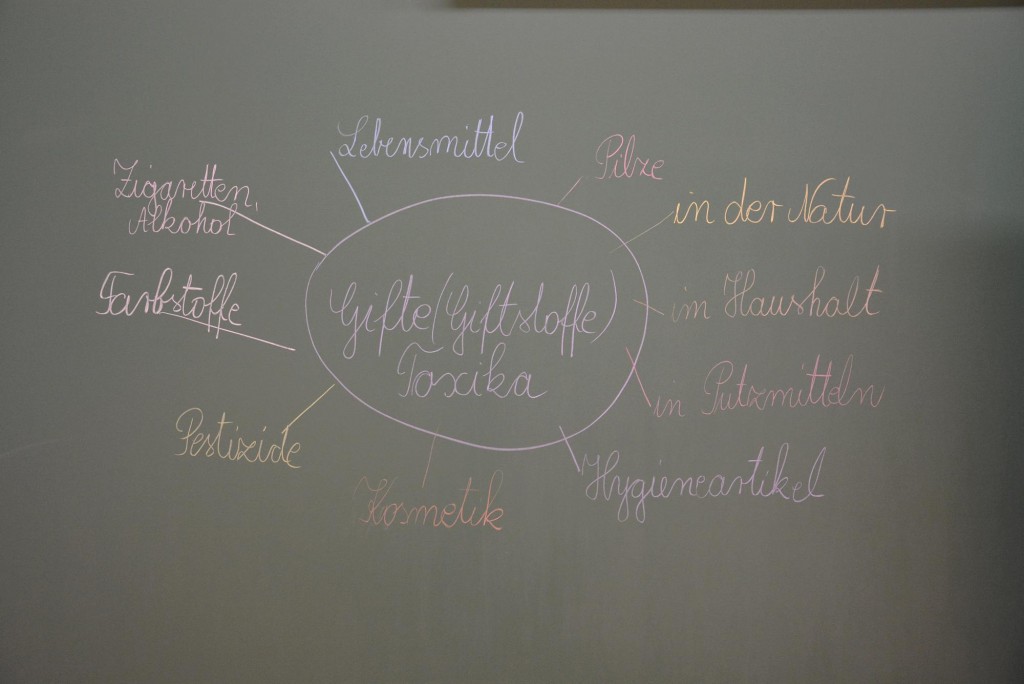 Lebensmittel
Pilze
in der Natur
im Haushalt
in Putzmitteln
Hygieneartikel
Kosmetik
Pestizide
Farbstoffe
Zigaretten,
Alkohol
Gifte (Giftstoffe)
Toxika